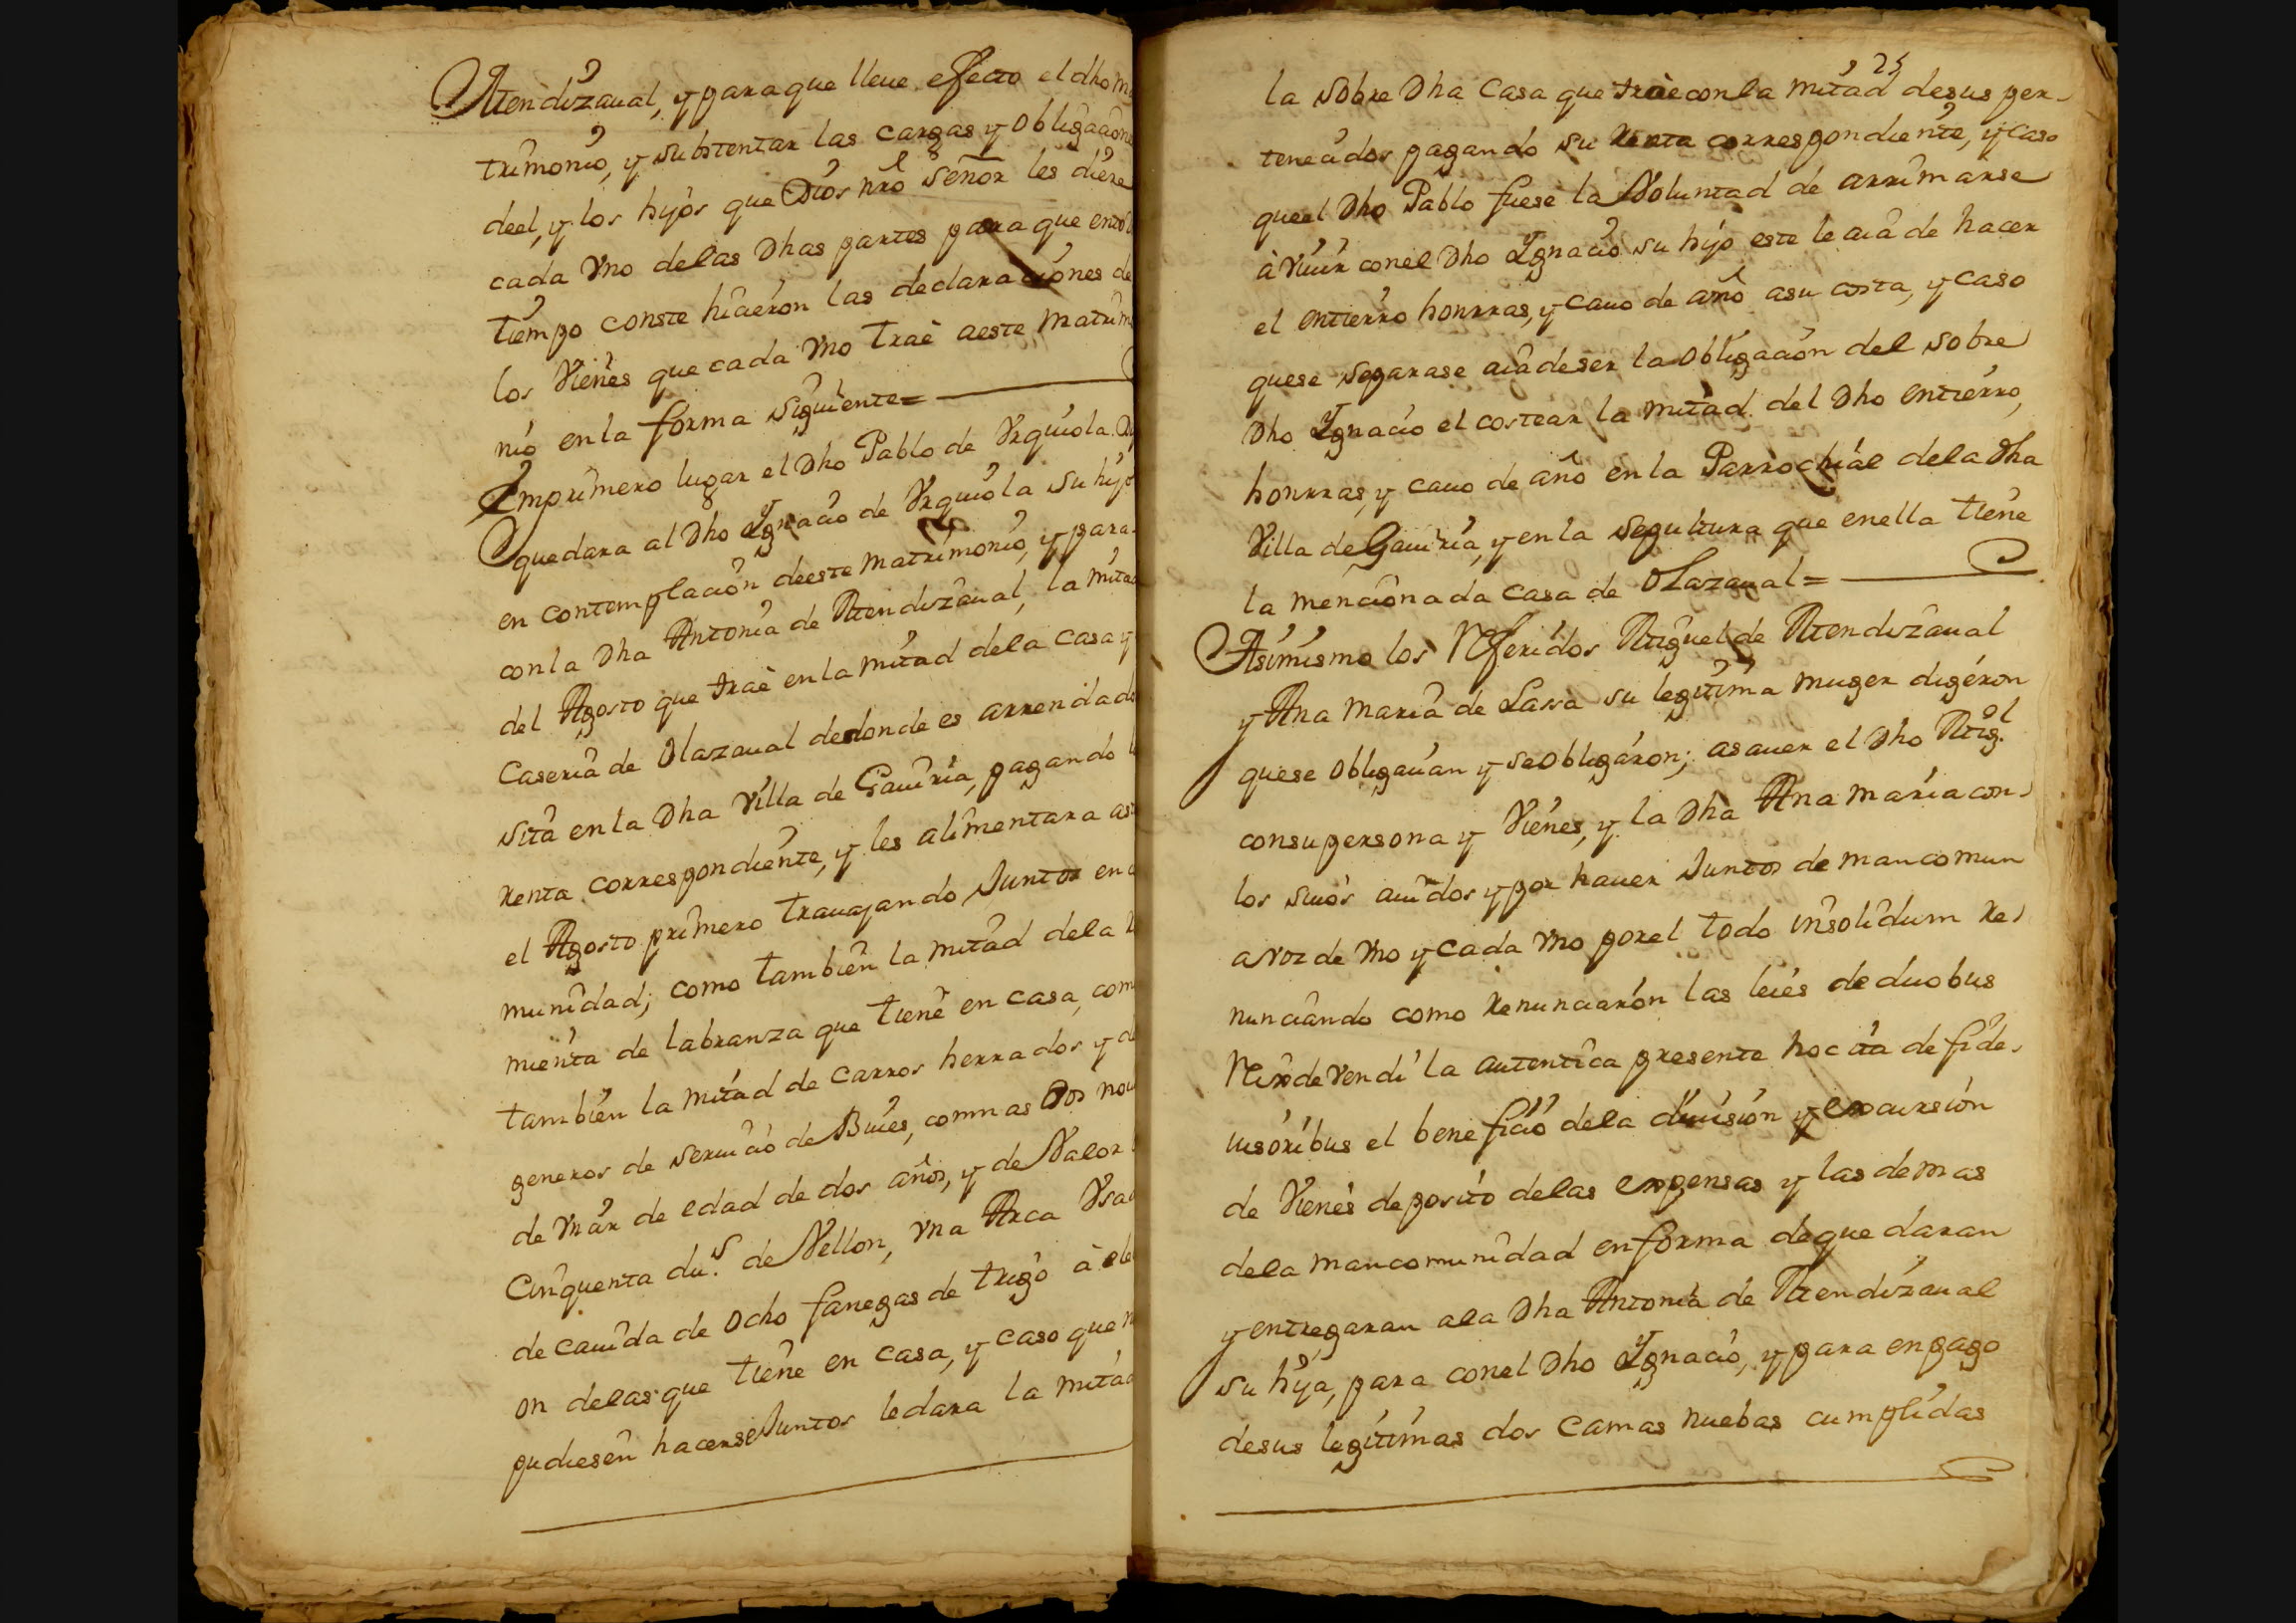 Mendizaual, y para que lleue efecto el dho m
trimonio, y substentar las cargas y obligacione
deel, y los hijos que Dios nrô Señor les diere
cada vno delas Dhas partes para que en tod
tiempo conste hicieron las declaraciones de
los Vienes que cada vno traè aeste matrim
nio en la forma siguiente=
Emprimero lugar el Dho Pablo de Vrquiola D
quedara al Dho Ygnacio de Vrquiola su hijo
en contemplacion deeste matrimonio, y para
con la Dha Antonia de Mendizaual, la mitad
del Agosto que traè en la mitad dela casa y
Caseria de Olazaual dedonde es arrendad
sita en la Dha Villa de Gauiria, pagando l
renta correspondiente, y les alimentara as
el Agosto primero trauajando Juntos en
munidad; como tambien la mitad dela
mienta de labranza que tiene en casa, com
tambien la mitad de carros herrados y d
generos de seruicio de Buies, con mas Dos nou
de vnâr de edad de dos años, y de Valor
Cinquenta du.s de Vellon, vna Arca Vsad
de cauida de ocho fanegas de trigo à ele
on delas que tiene en casa, y caso que n
pudiesen hacerse Juntos ledara la mitad
25
la sobre Dha Casa que traè con la mitad desus per-
tenecidos pagando su Renta correspondiente, y caso
queel Dho Pablo fuese la Voluntad de arrimarse
à viuir conel Dho Ygnacio su hijo este le aia de hacer
el entierro honrras, y cauo de año asu costa, y caso
quese separase aia deser la obligacion del sobre
Dho Ygnacio el costear la mitad del Dho entierro,
honrras, y cauo de año en la Parrochial dela Dha
Villa de Gauiria, y en la sepultura que enella tiene
la mencionada casa de Olazaual=
Asimismo los Referidos Miguel de Mendizaual
y Ana Maria de Lasa su legitima muger digeron
quese obligauan y se obligaron; asauer el Dho Mig.l
consu persona y Vienes, y la Dha Ana maria con
los suios auidos y por hauer Juntos de mancomun
avoz de vno y cada vno porel todo insolidum re
nunciando como renunciaron las leies de duobus
Reix de vendi la autentica presente hoc ita de fide
iusoribus el beneficio dela diuision y excursion
de Vienes deposito delas expensas y las demas
dela mancomunidad en forma dequedaran
y entregaran ala Dha Antonia de Mendizaual
su hija, para conel Dho Ygnacio, y para en pago
desus legitimas dos camas nuebas cumplidas